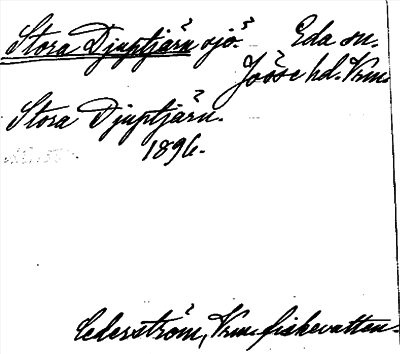 Stora Djuptjärn sjö. Eda sn.
Jösse hd. Vrm
Stora Djuptjärn.
1896.
Cederström, Vrm. fiskevatten.